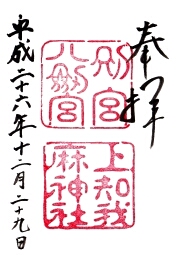 奉拝
別宮
八劔宮
上知我
麻神社
平成二十六年十二月二十九日